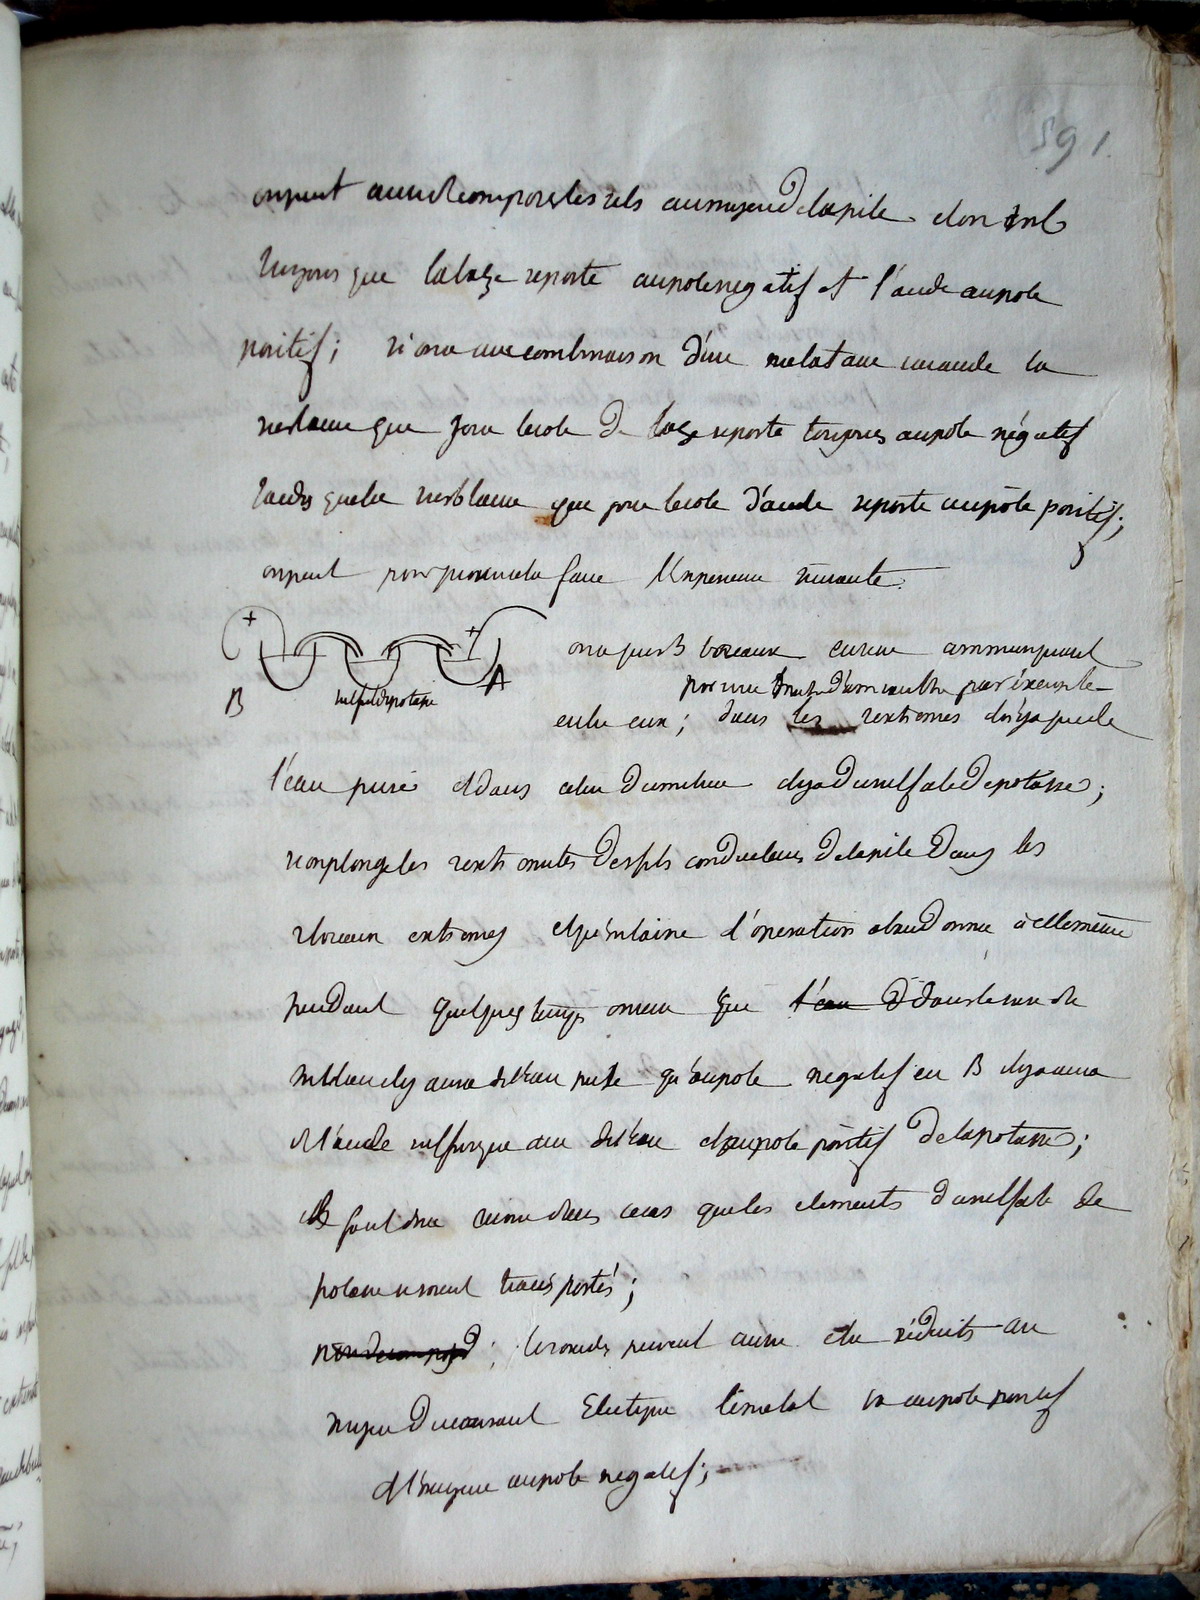 591.
on peut aussi decomposer les sels au moyen de la pile et on
toujours que la base se porte au pole negatif et l'acide au pole
positif; si on a une combinaison d'un metal avec un acide la
substance que joue le role de base se porte toujours au pole négatif
tandis que la substance que joue le role d'acide se porte au pôle positif;
on peut pour prouver cela faire l'experience suivante.
+ +
on a pour 3 vaseaux en verre communiquant
B sulfate de potasse A
par une d'amianthe par exemple
entre eux; dans les extremes il n'y a que de
l'eau pure et dans celui du milieu il y a du sulfate de potasse;
si on plonge les extremités des fils conducteurs de la pile dans les
vaseaux extremes et qu'on laisse l'operation abandonnée à elle même
pendant quelques temps on verra que l'eau dans le vase du
milieu il y aura de l'eau pure qu'au pole negatif en B il y aura
de l'acide sulfurique avec de l'eau et au pole positif de la potasse;
il faut donc dans ce cas que les elements du sulfate de
potasse se soient transportés;
non decomposé; les oxides peuvent aussi etre réduits au
moyen du courant Electrique le metal va au pole positif
et l'oxygene au pole negatif;